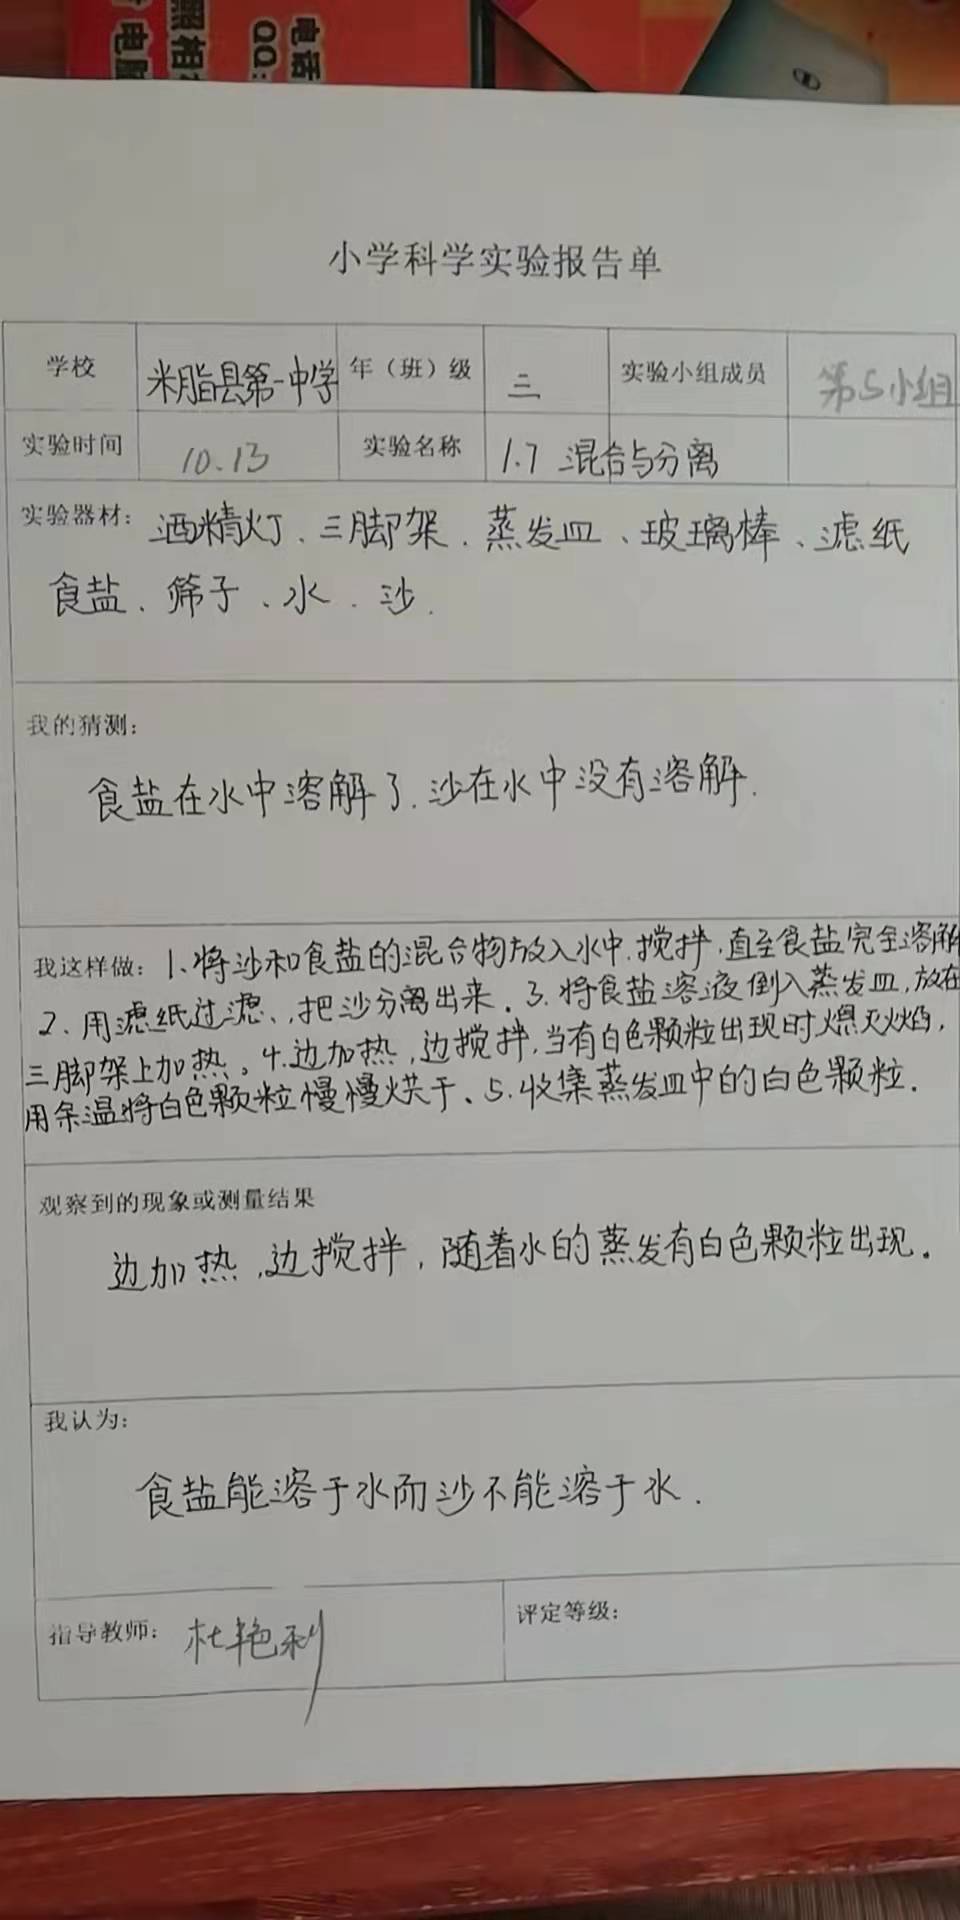 照相
电脑
电话
QQ:
小学科学实验报告单
学校 米脂县第一中学 年（班）级 三 实验小组成员 第5小组
实验时间 10.13 实验名称 1.7 混合与分离
实验器材： 酒精灯、三脚架、蒸发皿、玻璃棒、滤纸
食盐、筛子、水、沙.
我的猜测：
食盐在水中溶解了.沙在水中没有溶解.
我这样做：1、将沙和食盐的混合物放入水中.搅拌,直至食盐完全溶解
2、用滤纸过滤、,把沙分离出来.3、将食盐溶液倒入蒸发皿,放在
三脚架上加热。4.边加热,边搅拌,当有白色颗粒出现时熄灭火焰,
用余温将白色颗粒慢慢烘干、5.收集蒸发皿中的白色颗粒.
观察到的现象或测量结果
边加热,边搅拌,随着水的蒸发有白色颗粒出现.
我认为:
食盐能溶于水而沙不能溶于水.
指导教师： 杜艳利 评定等级: